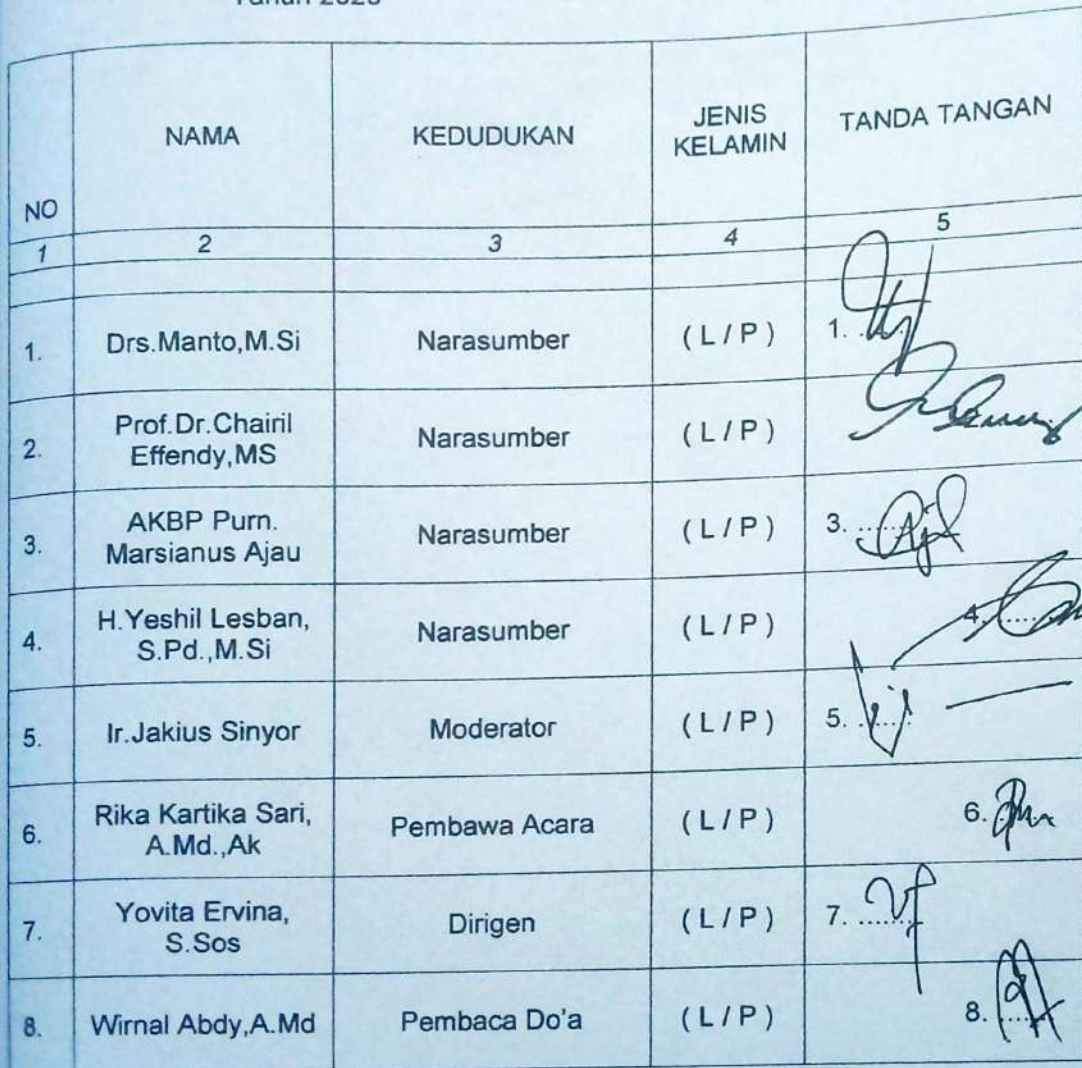 Tahun 2023
NO
NAMA
KEDUDUKAN
JENIS
KELAMIN
TANDA TANGAN
1 2 3 4 5
1. Drs.Manto,M.Si Narasumber ( L / P ) 1.
2. Prof.Dr.Chairil
Effendy,MS Narasumber ( L / P )
3. AKBP Purn.
Marsianus Ajau Narasumber ( L / P ) 3.
4. H.Yeshil Lesban,
S.Pd.,M.Si Narasumber ( L / P ) 4.
5. Ir.Jakius Sinyor Moderator ( L / P ) 5.
6. Rika Kartika Sari,
A.Md.,Ak Pembawa Acara ( L / P ) 6.
7. Yovita Ervina,
S.Sos Dirigen ( L / P ) 7.
8. Wirnal Abdy,A.Md Pembaca Do'a ( L / P ) 8.